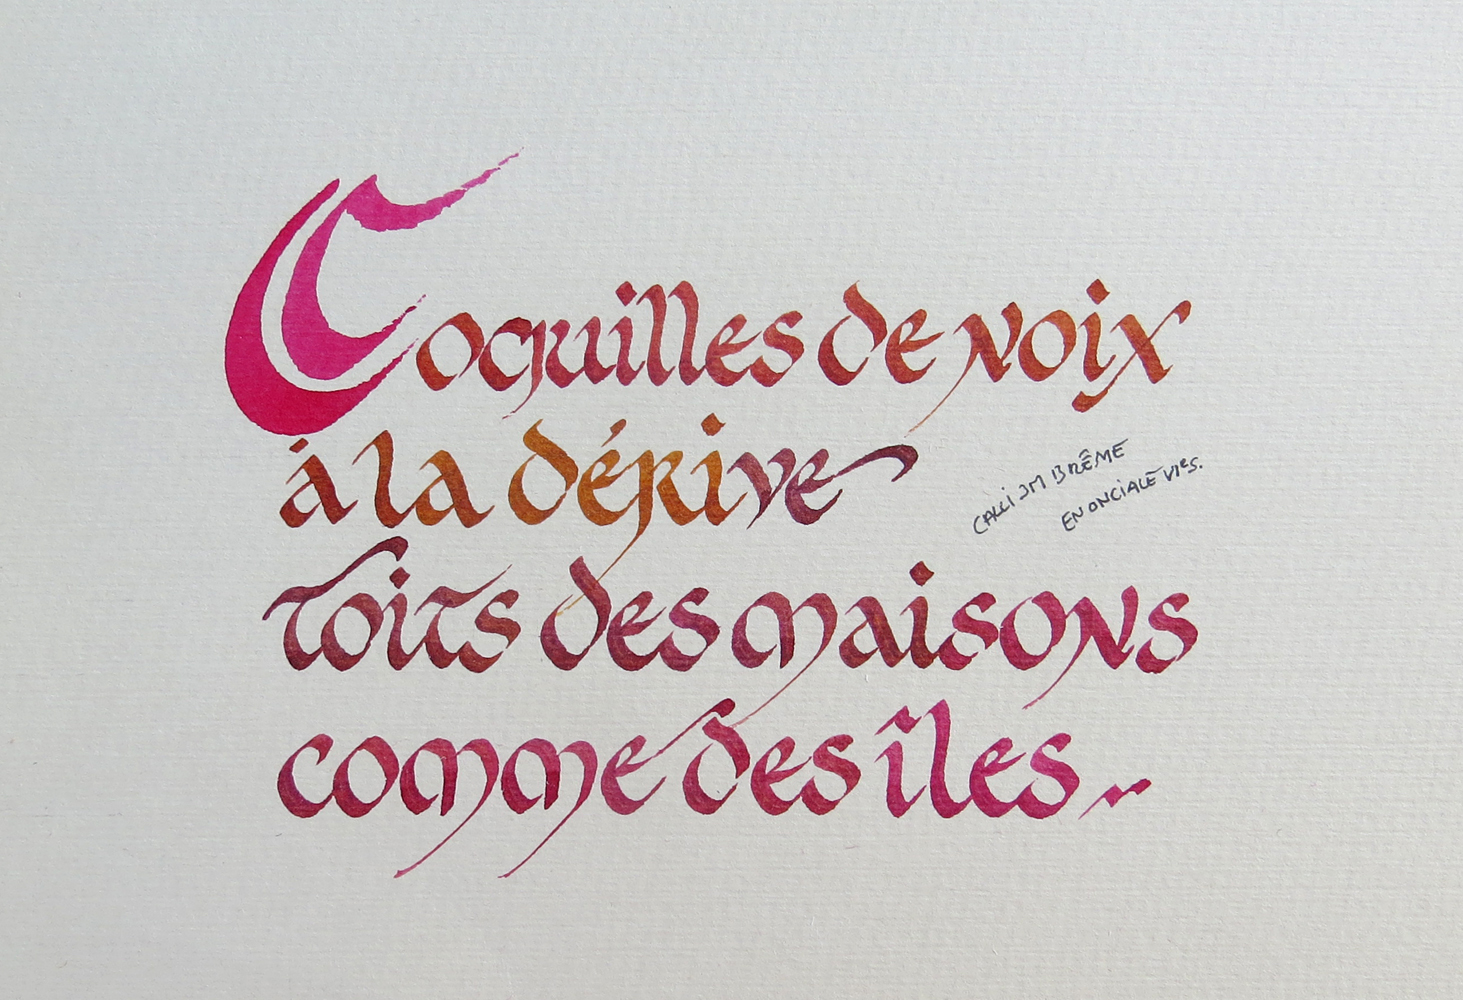 Coquilles de noix
à la dérive
toits des maisons
comme des îles
CALLI JM BRÊME
EN ONCIALE VIᵉS.